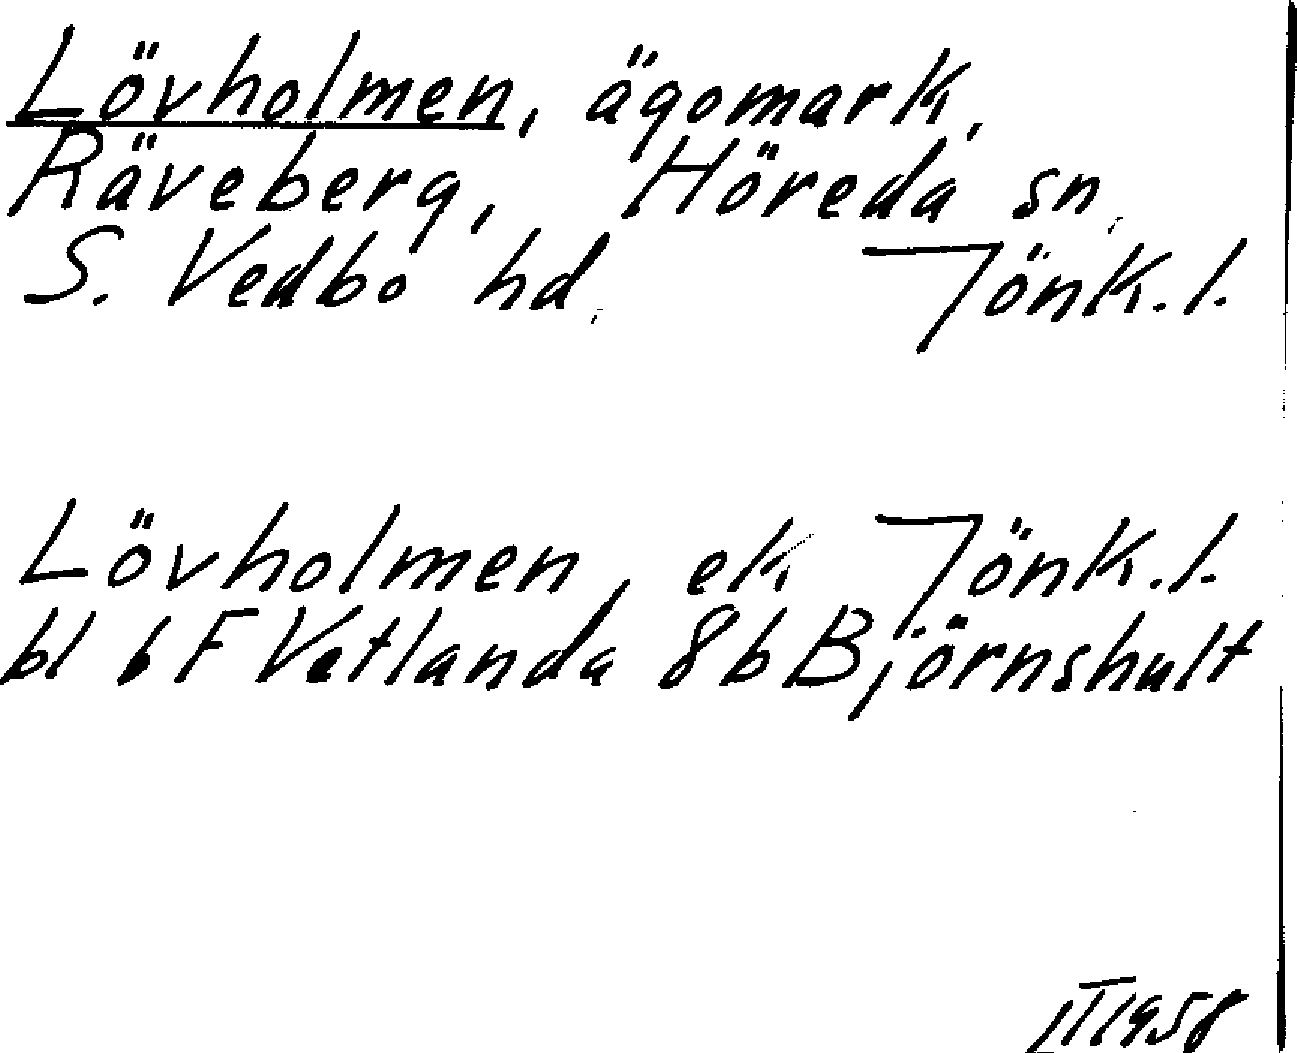 Lövholmen, ägomark,
Räveberg, Höreda sn,
S. Vedbo hd. Jönk.l.
Lövholmen, ek Jönk.l.
bl 6F Vetlanda 8b Björnshult
1958